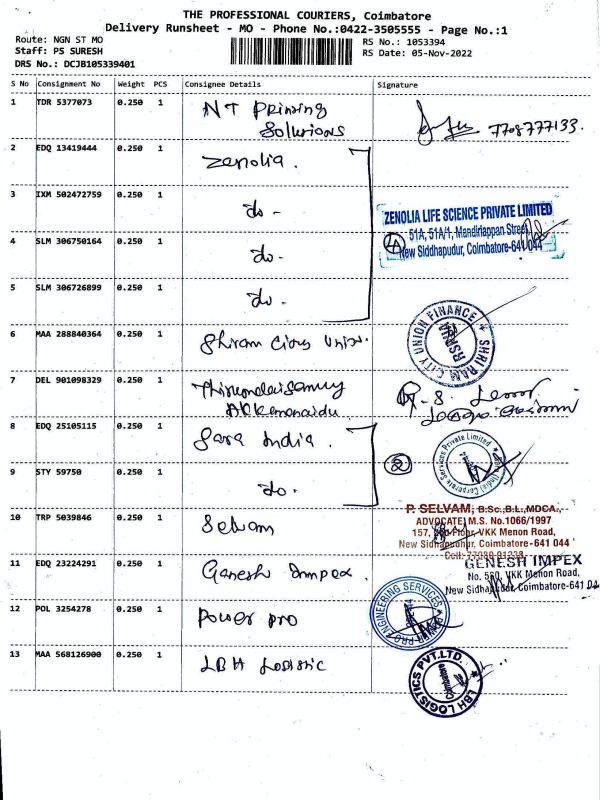 THE PROFESSIONAL COURIERS, Coimbatore
Delivery Runsheet - MO - Phone No.:0422-3505555 - Page No.:1
Route: NGN ST MO
RS No.: 1053394
Staff: PS SURESH
RS Date: 05-Nov-2022
DRS No.: DCJB105339401
S No Consignment No Weight PCS Consignee Details Signature
1 TDR 5377073 0.250 1 NT Printing
Solutions 7708777133.
2 EDQ 13419444 0.250 1 Zenolia.
3 IXM 502472759 0.250 1 do -
ZENOLIA LIFE SCIENCE PRIVATE LIMITED
51A, 51A/1, Mandiriappan Street,
New Siddhapudur, Coimbatore-641 044
4 SLM 306750164 0.250 1 do-
5 SLM 306726899 0.250 1 do -
6 MAA 288840364 0.250 1 Shiram City Union.
SHRI RAM CITY UNION FINANCE
7 DEL 901098329 0.250 1
R. S.
8 EDQ 25105115 0.250 1 Sara India.
2
(India) Corporate Services Private Limited
9 STY 59750 0.250 1 do.
10 TRP 5039846 0.250 1 Selvam
P. SELVAM, B.Sc.,B.L.,MDCA.,
ADVOCATE, M.S. No.1066/1997
157, VKK Menon Road,
New Sidhapudur, Coimbatore-641 044
11 EDQ 23224291 0.250 1 Ganesh Impex.
GENESH IMPEX
No. 580, VKK Menon Road,
New Sidhapudur, Coimbatore-641 044
12 POL 3254278 0.250 1 Power pro
POWER PRO ENGINEERING SERVICES
13 MAA 568126900 0.250 1 LBH Logistic
LBH LOGISTICS PVT.LTD.
Coimbatore